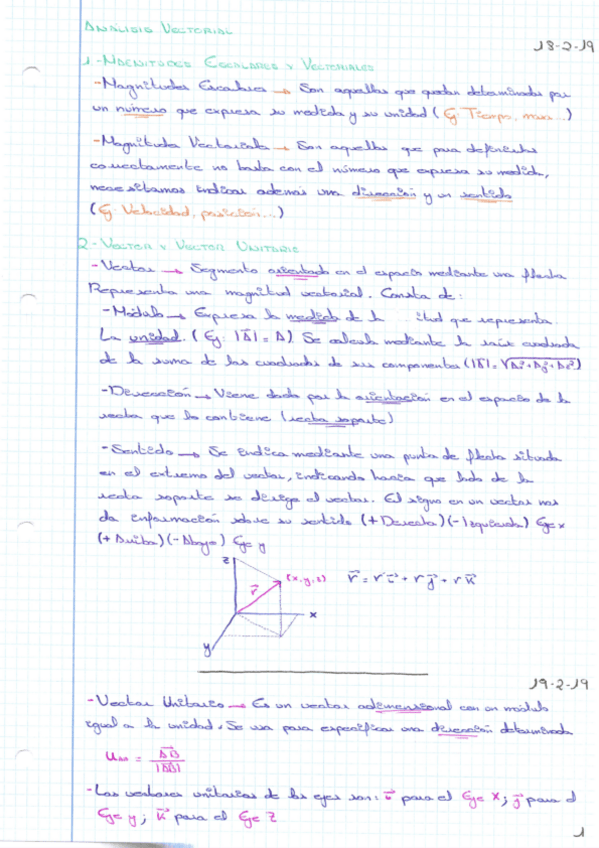 ANÁLISIS VECTORIAL
18-2-19
1.-MAGNITUDES ESCALARES Y VECTORIALES
-Magnitudes Escalares → Son aquellas que quedan determinadas por
un número que expresa su medida y su unidad (Ej: Tiempo, masa...)
-Magnitudes Vectoriales → Son aquellas que para definirlas
correctamente no basta con el número que expresa su medida,
necesitamos indicar además una dirección y un sentido
(Ej: Velocidad, posición...)
2-VECTOR Y VECTOR UNITARIO
-Vector → Segmento orientado en el espacio mediante una flecha
Representa una magnitud vectorial. Consta de:
-Módulo → Expresa la medida de la itud que representa.
La unidad. (Ej: |A⃗| = A) Se calcula mediante la raíz cuadrada
de la suma de los cuadrados de sus componentes (|A⃗| = √Ax²+Ay²+Az²)
-Dirección → Viene dada por la orientación en el espacio de la
recta que lo contiene (recta soporte)
-Sentido → Se indica mediante una punta de flecha situada
en el extremo del vector, indicando hacia que lado de la
recta soporte se dirige el vector. El signo en un vector nos
da información sobre su sentido (+Derecha)(-Izquierda) Eje x
(+Arriba)(-Abajo) Eje y
z
(x,y,z)
r⃗ = r i⃗ + r j⃗ + r k⃗
r⃗
x
y
19-2-19
-Vector Unitario → Es un vector adimensional con un módulo
igual a la unidad. Se usa para especificar una dirección determinada
U_AB = AB⃗ / |AB⃗|
-Los vectores unitarios de los ejes son: i⃗ para el Eje X; j⃗ para el
Eje y; k⃗ para el Eje Z
1